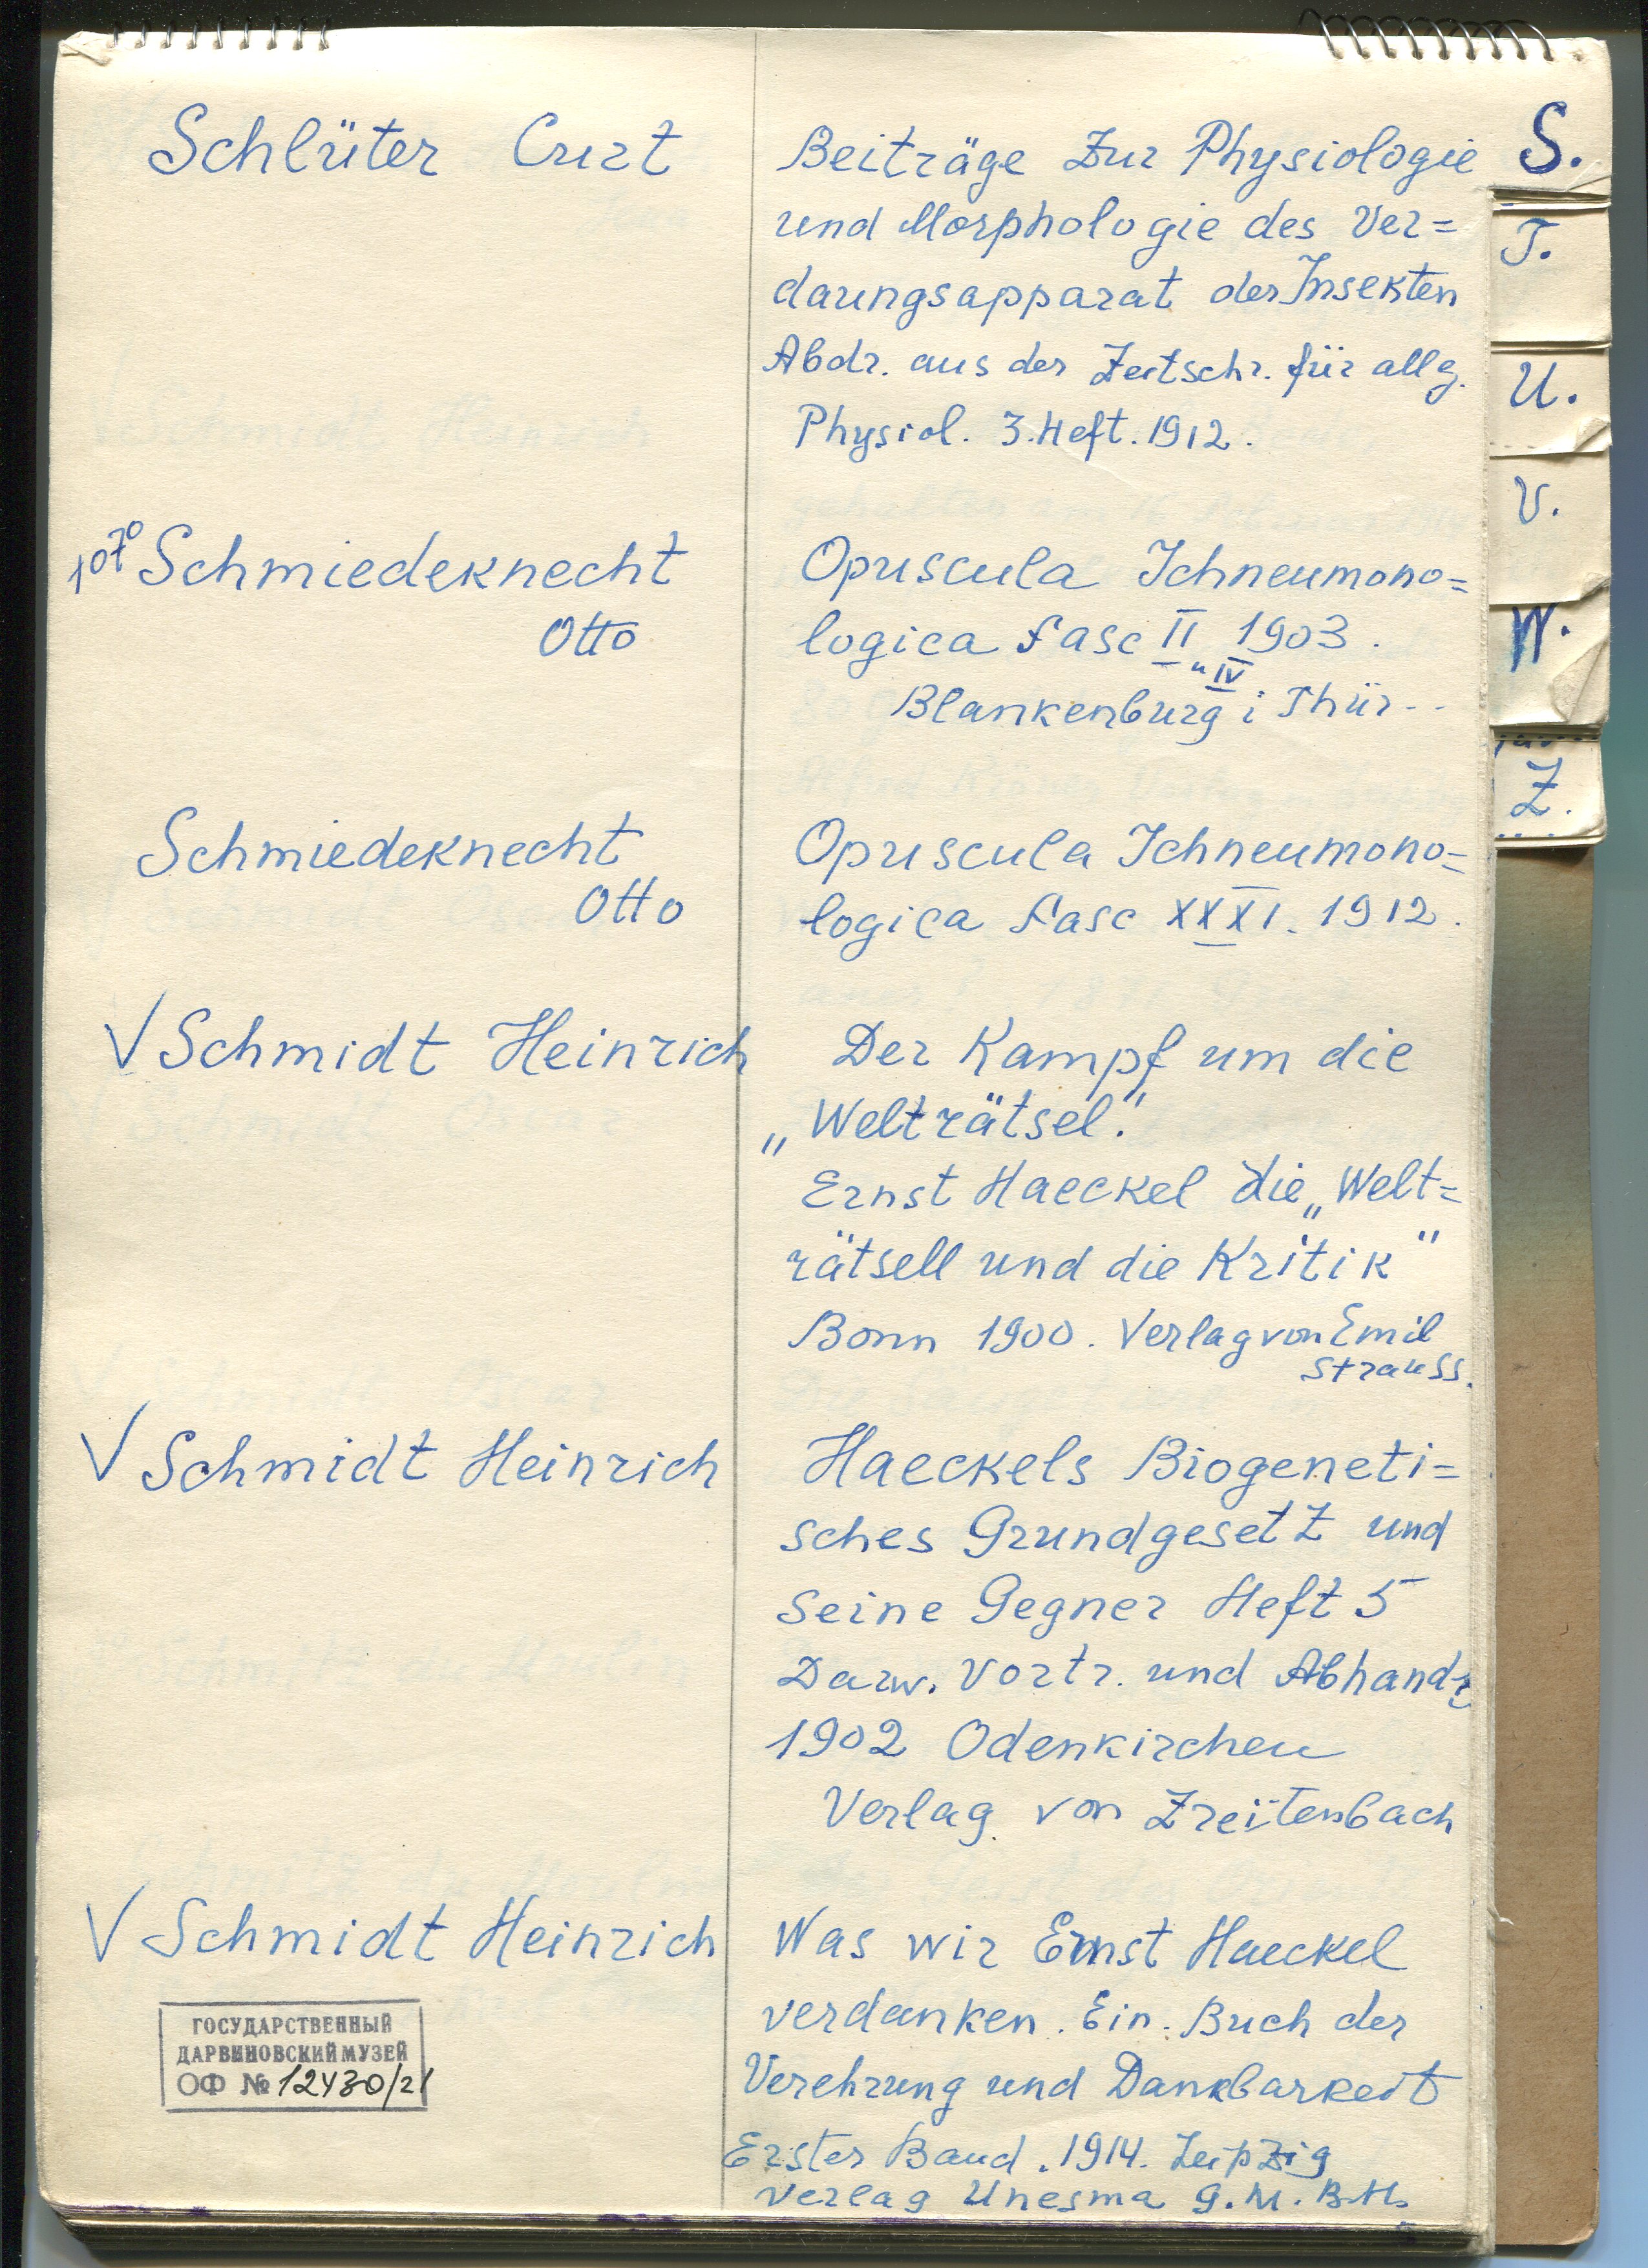 Schlüter Curt
Beiträge zur Physiologie
und Morphologie des Ver=
dauungsapparat der Insekten
Abdr. aus der Zeitschr. für allg.
Physiol. 3. Heft. 1912.
Schmiedeknecht
Otto
Opuscula Ichneumono=
logica Fasc II 1903.
" IV
Blankenburg i Thür..
Schmiedeknecht
Otto
Opuscula Ichneumono=
logica Fasc XXXI. 1912.
V Schmidt Heinrich
Der Kampf um die
„Welträtsel."
Ernst Haeckel die „Welt=
rätsell und die Kritik"
Bonn 1900. Verlag von Emil
Strauss.
V Schmidt Heinrich
Haeckels Biogeneti=
sches Grundgesetz und
seine Gegner Heft 5
Darw. Vortr. und Abhand
1902 Odenkirchen
Verlag von Zreitenbach
V Schmidt Heinrich
Was wir Ernst Haeckel
verdanken. Ein Buch der
Verehrung und Dankbarkeit
Erster Band. 1914. Leipzig
Verlag Unesma G.M.B.H.
ГОСУДАРСТВЕННЫЙ
ДАРВИНОВСКИЙ МУЗЕЙ
ОФ № 12430/21
S.
T.
U.
V.
W.
Z.